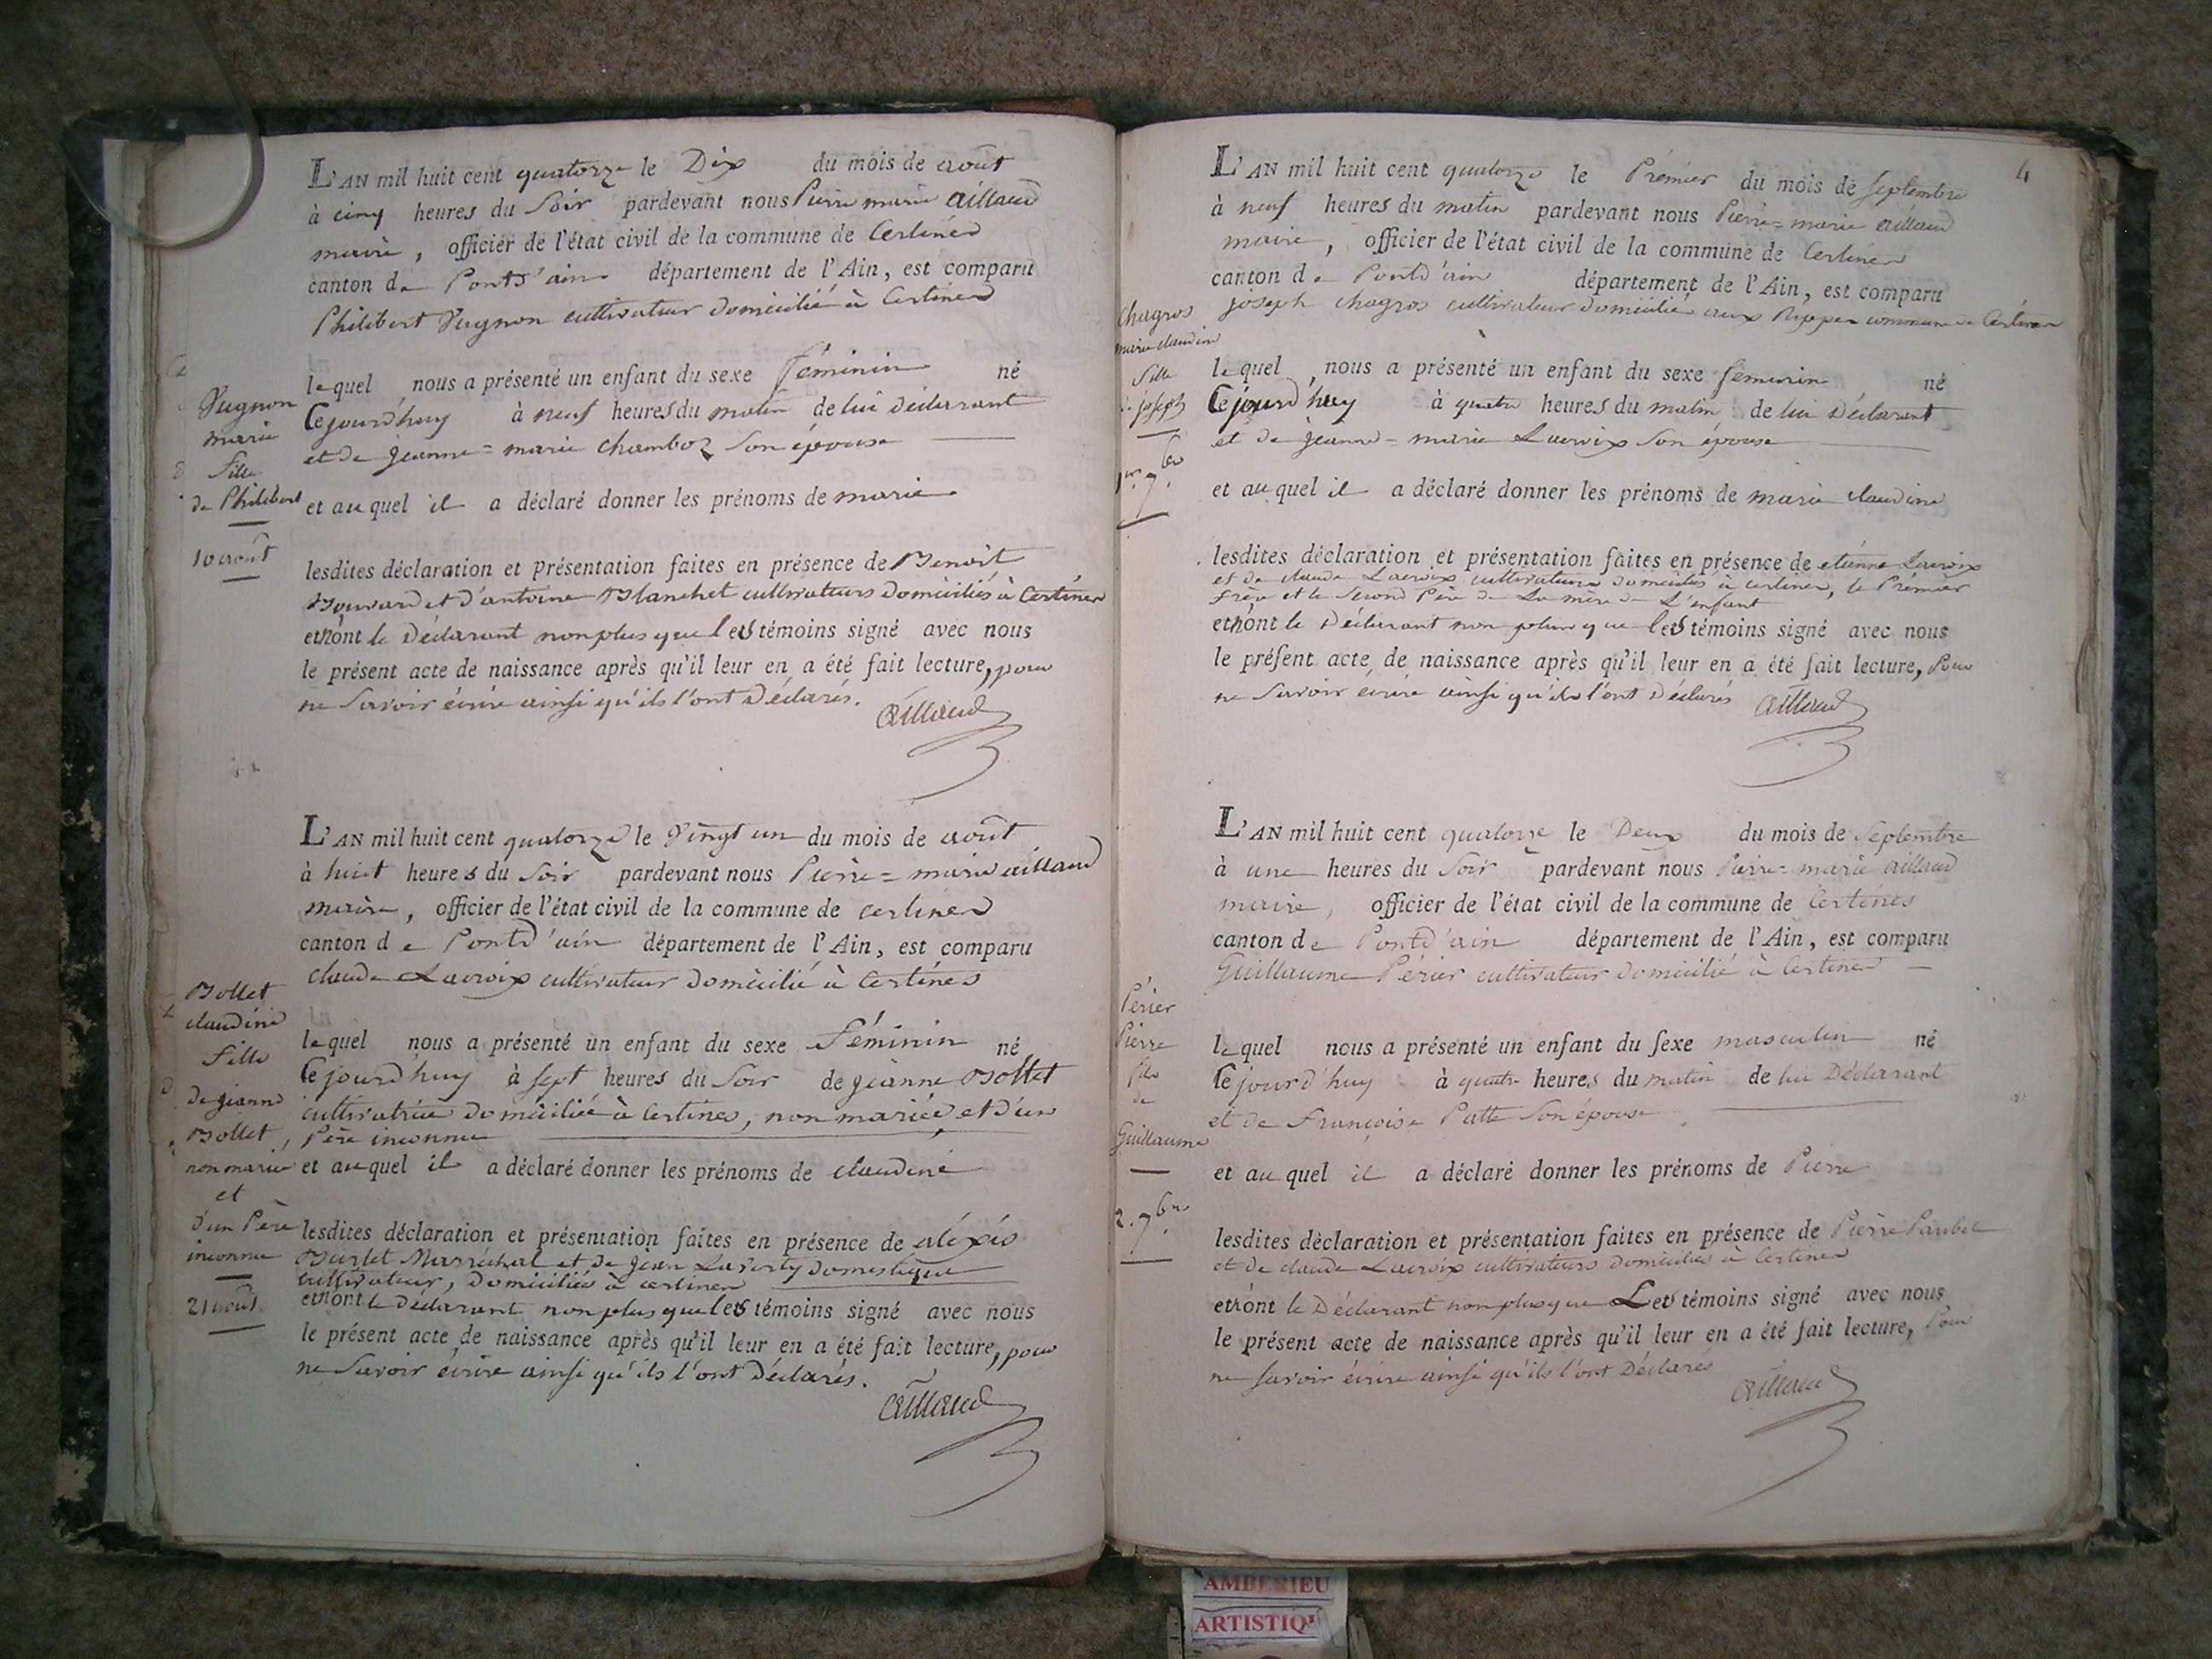 L'AN mil huit cent quatorze le Dix du mois de août
à cinq heures du Soir pardevant nous Pierre marie aillaud
maire, officier de l'état civil de la commune de Certines
canton de Ponts'ain département de l'Ain, est comparu
Philibert Vugnon cultivateur domicilié à Certines
lequel nous a présenté un enfant du sexe féminin né
Cejourd'huy à neuf heures du matin de lui déclarant
et de jeanne=marie chamboz Son épouse
et auquel il a déclaré donner les prénoms de marie
lesdites déclaration et présentation faites en présence de Benoit
Bouvard et d'antoine Blanchet cultivateurs Domiciliés à Certines
et n'ont le Déclarant non plus que les témoins signé avec nous
le présent acte de naissance après qu'il leur en a été fait lecture, pour
ne Savoir écrire ainsi qu'ils l'ont Déclarés.
aillaud
Vugnon
marie
fille
de Philibert
10 août
L'AN mil huit cent quatorze le Vingt un du mois de août
à huit heures du Soir pardevant nous Pierre=marie aillaud
maire, officier de l'état civil de la commune de certines
canton de Pontd'ain département de l'Ain, est comparu
claude Lacroix cultivateur domicilié à Certines
lequel nous a présenté un enfant du sexe féminin né
Cejourd'huy à sept heures du Soir de jeanne Bollet
cultivatrice domiciliée à Certines, non mariée, et d'un
Père inconnu
et auquel il a déclaré donner les prénoms de claudine
lesdites déclaration et présentation faites en présence de aléxis
Burlet Maréchal et de jean domestique
cultivateur, domiciliés à certines
et n'ont le Déclarant non plus que les témoins signé avec nous
le présent acte de naissance après qu'il leur en a été fait lecture, pour
ne Savoir écrire ainsi qu'ils l'ont Déclarés.
aillaud
Bollet
claudine
fille
de jeanne
Bollet,
non mariée
et
d'un Père
inconnu
21 août
4
L'AN mil huit cent quatorze le Prémier du mois de septembre
à neuf heures du matin pardevant nous Pierre=marie aillaud
maire, officier de l'état civil de la commune de Certines
canton de Pontd'ain département de l'Ain, est comparu
joseph chagros cultivateur domicilié aux Rippes commune de Certines
lequel nous a présenté un enfant du sexe féminin né
Cejourd'huy à quatre heures du matin de lui Déclarant
et de jeanne=marie Lacroix Son épouse
et auquel il a déclaré donner les prénoms de marie claudine
lesdites déclaration et présentation faites en présence de etienne Lacroix
et de claude Lacroix cultivateurs domiciliés à certines, le Prémier
frère et le Second Père de La mère de L'enfant
et n'ont le Déclarant non plus que les témoins signé avec nous
le présent acte de naissance après qu'il leur en a été fait lecture, Pour
ne Savoir écrire ainsi qu'ils l'ont Déclarés
aillaud
Chagros
marie claudine
fille
de joseph
1er 7bre
L'AN mil huit cent quatorze le Deux du mois de Septembre
à une heures du Soir pardevant nous Pierre=marie aillaud
maire, officier de l'état civil de la commune de Certines
canton de Pontd'ain département de l'Ain, est comparu
Guillaume Périer cultivateur domicilié à Certines
lequel nous a présenté un enfant du sexe masculin né
Cejourd'huy à quatre heures du matin de lui Déclarant
et de françoise Patte Son épouse
et auquel il a déclaré donner les prénoms de Pierre
lesdites déclaration et présentation faites en présence de Pierre Paubel
et de claude Lacroix cultivateurs domiciliés à Certines
et n'ont le Déclarant non plus que Les témoins signé avec nous
le présent acte de naissance après qu'il leur en a été fait lecture, Pour
ne savoir écrire ainsi qu'ils l'ont Déclarés
aillaud
Périer
Pierre
fils
de
Guillaume
2. 7bre
AMBERIEU
ARTISTIQU